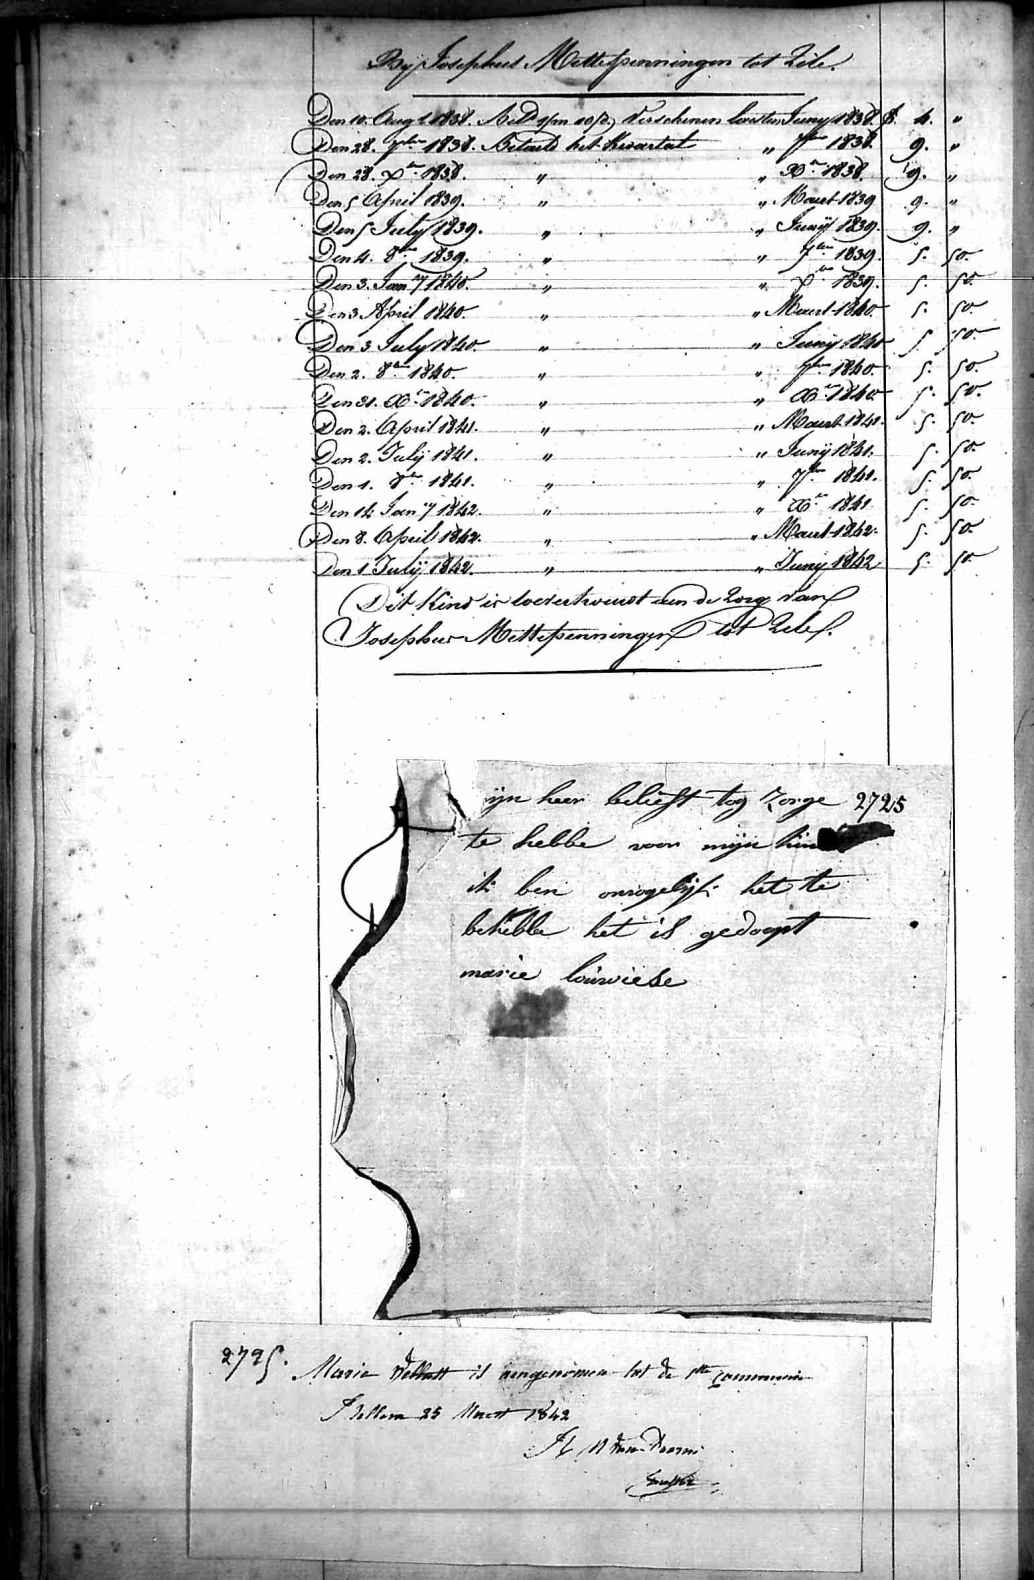 Bij Josephus Mettepenningen tot Zele.
Den 10. Augt. 1838. Verschenen Junij 1838. f. 4. "
Den 28. 7ber 1838. Betaeld het kwartael " 7ber 1838. 9. "
Den 28. Xer 1838. " " Xer 1838. 9. "
Den 5 April 1839. " " Maert 1839 9. "
Den 5 July 1839. " " Junij 1839. 9. "
Den 4. 8ber 1839. " " 7ber 1839. 5. 50.
Den 3. Jan.y 1840. " " Xer 1839. 5. 50.
Den 3 April 1840. " " Maert 1840. 5. 50.
Den 3 July 1840. " " Junij 1840 5. 50.
Den 2. 8ber 1840. " " 7ber 1840. 5. 50.
Den 31. Xer 1840. " " Xer 1840 5. 50.
Den 2. April 1841. " " Maert 1841. 5. 50.
Den 2. Julij 1841. " " Junij 1841. 5. 50.
Den 1. 8ber 1841. " " 7ber 1841. 5. 50.
Den 14 Jan.y 1842. " " Xer 1841 5. 50.
Den 8. April 1842. " " Maert 1842. 5. 50.
Den 1 Julij 1842. " " Junij 1842 5. 50
Dit Kind is toevertrouwt aen de Zorg van
Josephus Mettepenningen tot Zele.
ijn heer belieft tog zorge 2725
te hebbe voor mijn kin
ik ben onmogelijk het te
behebbe het is gedoopt
marie louwiese
2725.
Maria is aengenomen tot de 1ste communie
25 Maert 1842